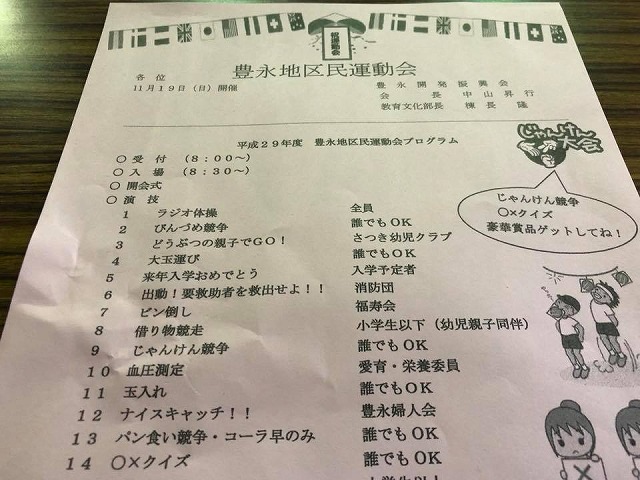 豊永地区民運動会
各位
11月19日（日）開催
豊永開発振興会
会長 中山昇行
教育文化部長 棟長 隆
平成29年度 豊永地区民運動会プログラム
じゃんけん大会
○ 受付 （8：00～）
○ 入場 （8：30～）
○ 開会式
○ 演技
じゃんけん競争
○×クイズ
豪華賞品ゲットしてね！
1 ラジオ体操 全員
2 びんづめ競争 誰でもOK
3 どうぶつの親子でGO！ さつき幼児クラブ
4 大玉運び 誰でもOK
5 来年入学おめでとう 入学予定者
6 出動！要救助者を救出せよ！！ 消防団
7 ビン倒し 福寿会
8 借り物競走 小学生以下（幼児親子同伴）
9 じゃんけん競争 誰でもOK
10 血圧測定 愛育・栄養委員
11 玉入れ 誰でもOK
12 ナイスキャッチ！！ 豊永婦人会
13 パン食い競争・コーラ早のみ 誰でもOK
14 ○×クイズ 誰でもOK